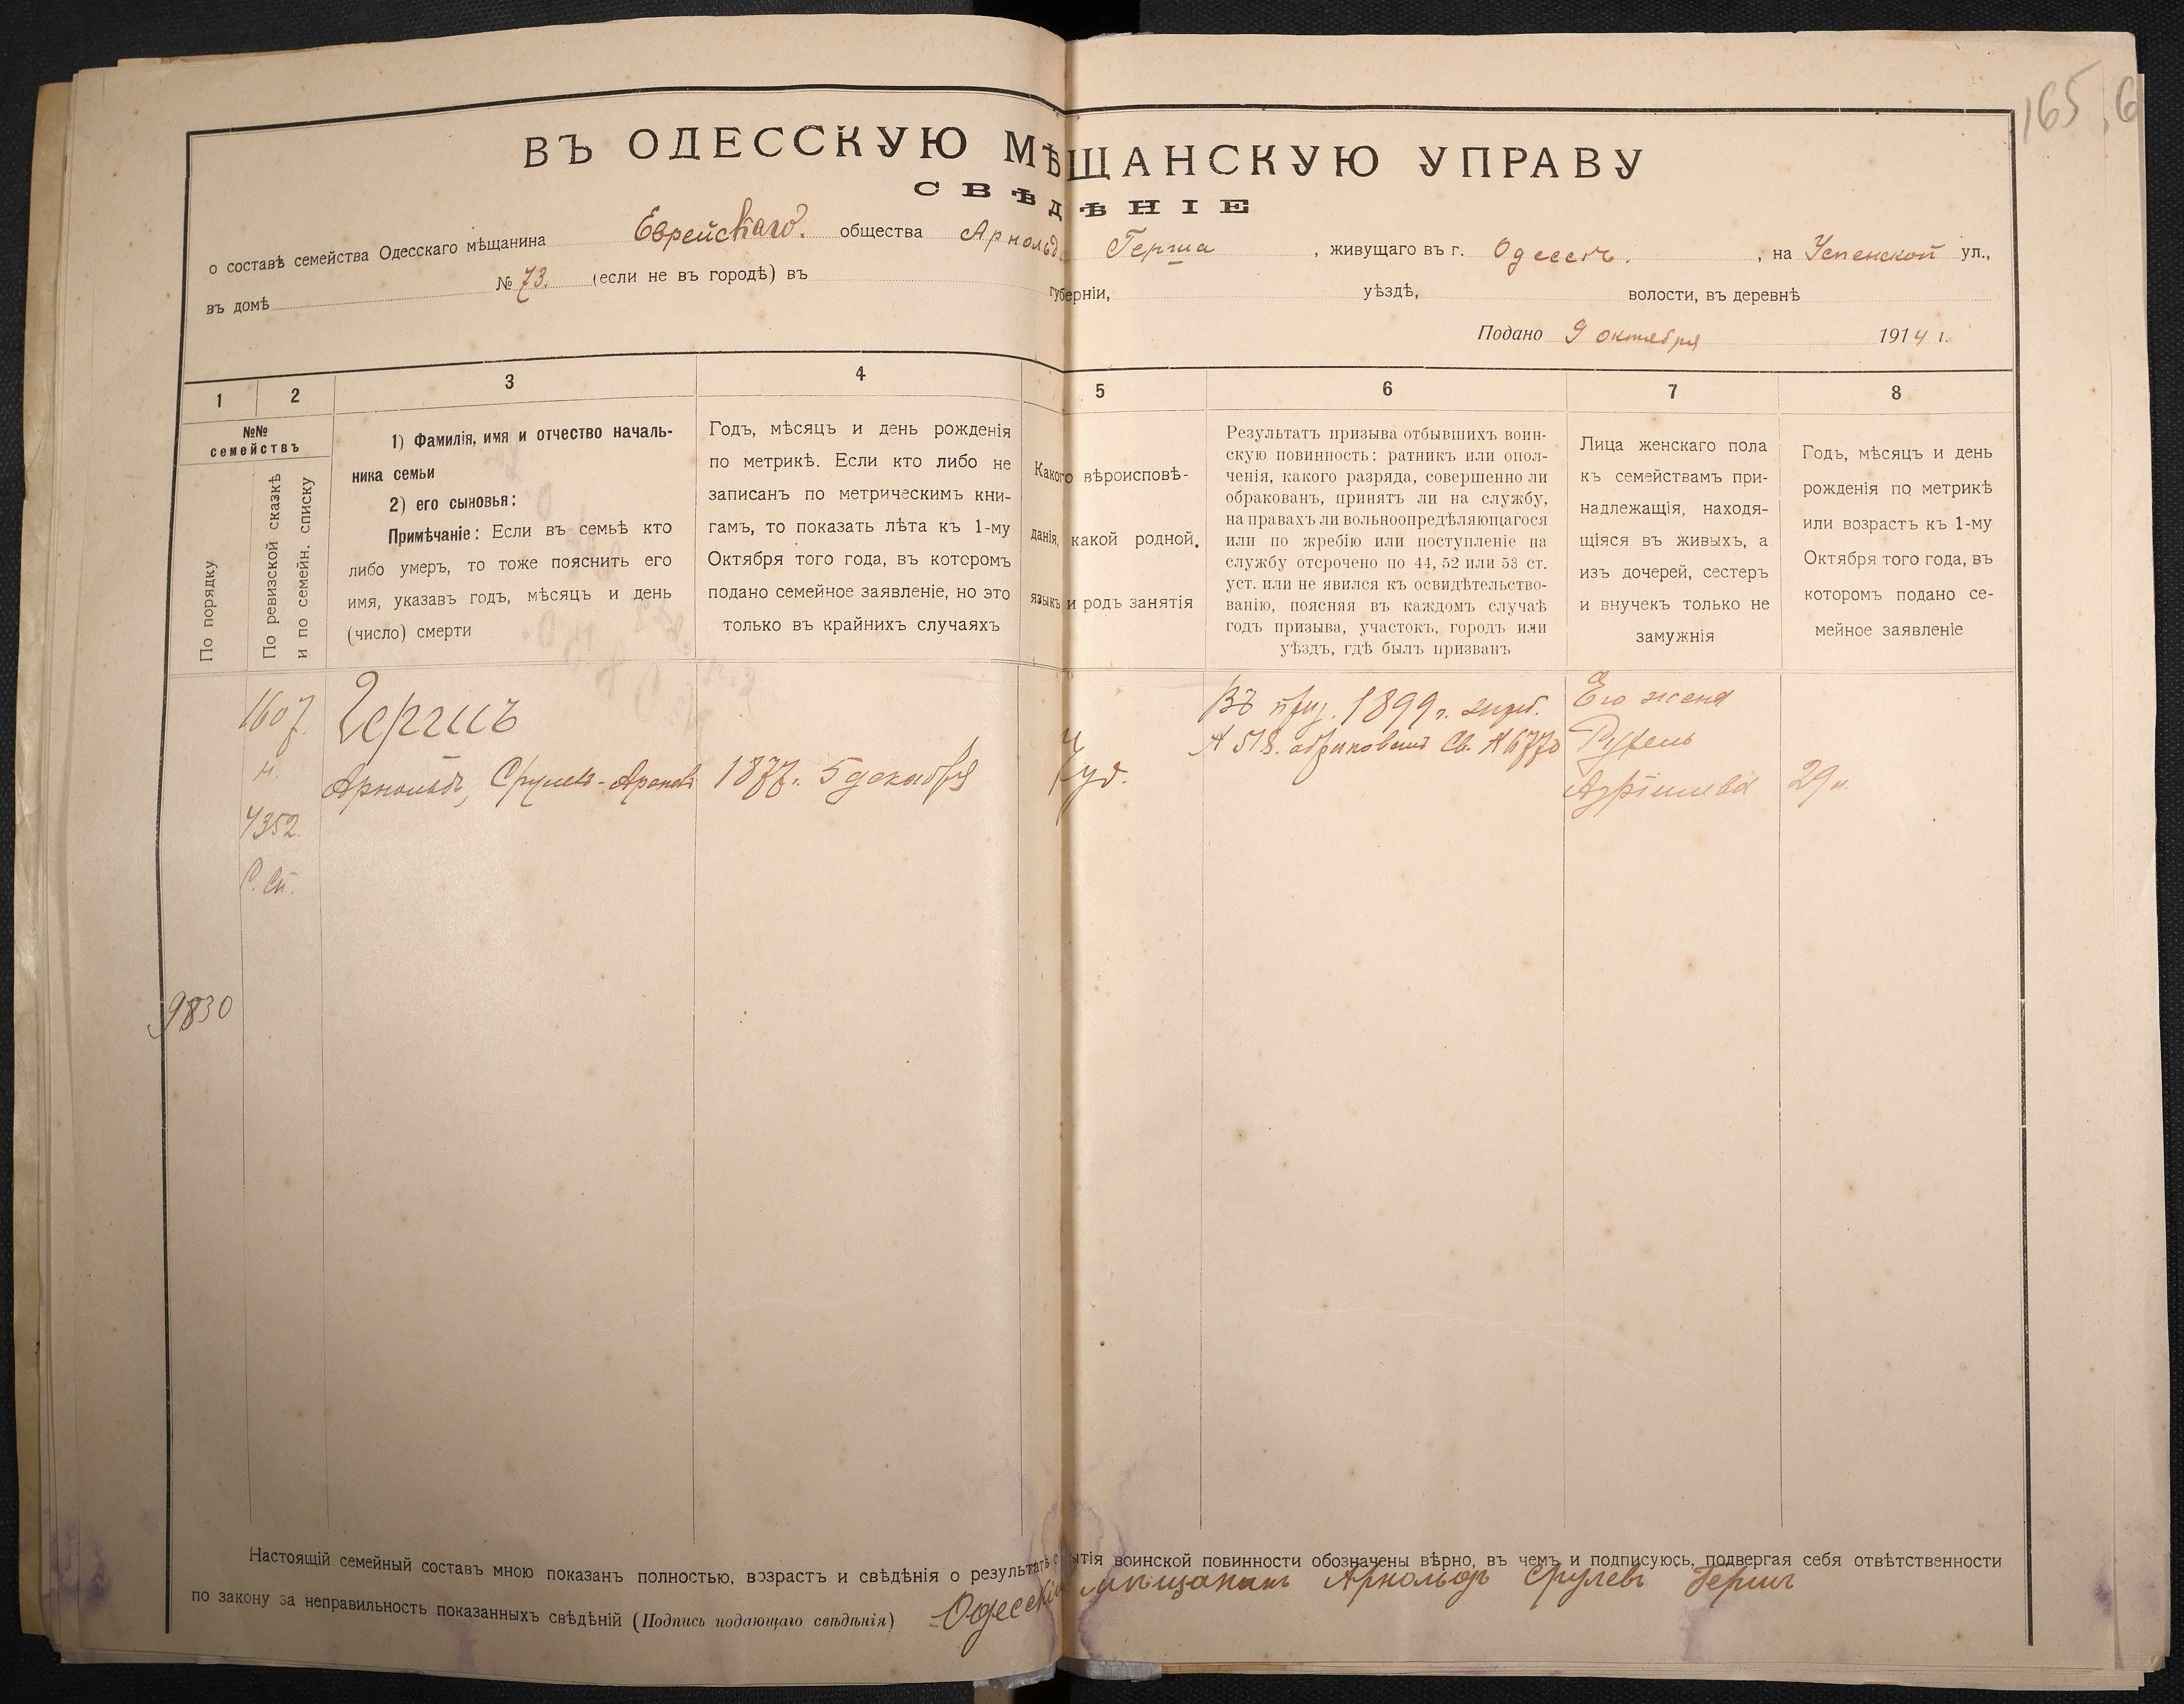 165
ВЪ ОДЕССКУЮ МѢЩАНСКУЮ УПРАВУ
СВѢДѢНІЕ
о составѣ семейства Одесскаго мѣщанина Еврейскаго. общества Арнольда Герша, живущаго въ г. Одессѣ., на Успенской ул.,
въ домѣ № 73. (если не въ городѣ) въ губерніи, уѣздѣ, волости, въ деревнѣ
Подано 9 октября 1914 г.
1 2 3 4 5 6 7 8
№№
семействъ
По порядку
По ревизской сказкѣ
и по семейн. списку
1) Фамилія, имя и отчество началь-
ника семьи
2) его сыновья:
Примѣчаніе: Если въ семьѣ кто
либо умеръ, то тоже пояснить его
имя, указавъ годъ, мѣсяцъ и день
(число) смерти
Годъ, мѣсяцъ и день рожденія
по метрикѣ. Если кто либо не
записанъ по метрическимъ кни-
гамъ, то показать лѣта къ 1-му
Октября того года, въ которомъ
подано семейное заявленіе, но это
только въ крайнихъ случаяхъ
Какого вѣроисповѣ-
данія, какой родной
языкъ и родъ занятія
Результатъ призыва отбывшихъ воин-
скую повинность: ратникъ или опол-
ченія, какого разряда, совершенно ли
обракованъ, принятъ ли на службу,
на правахъ ли вольноопредѣляющагося
или по жребію или поступленіе на
службу отсрочено по 44, 52 или 53 ст.
уст. или не явился къ освидѣтельство-
ванію, поясняя въ каждомъ случаѣ
годъ призыва, участокъ, городъ или
уѣздъ, гдѣ былъ призванъ
Лица женскаго пола
къ семействамъ при-
надлежащія, находя-
щіяся въ живыхъ, а
изъ дочерей, сестеръ
и внучекъ только не
замужнія
Годъ, мѣсяцъ и день
рожденія по метрикѣ
или возрастъ къ 1-му
Октября того года, въ
которомъ подано се-
мейное заявленіе
1607
4352.
Р. Сп.
9830
Гершъ
Арнольдъ, Срулевъ-Ароновъ
1877 г. 5 декабря
Іуд.
Въ приз. 1899 г.
№ 518. обракованъ Св. №
Его жена
Рухель
29 л.
Настоящій семейный составъ мною показанъ полностью, возрастъ и свѣдѣнія о результатѣ отбытія воинской повинности обозначены вѣрно, въ чемъ и подписуюсь, подвергая себя отвѣтственности
по закону за неправильность показанныхъ свѣдѣній (Подпись подающаго свѣдѣнія) Одесскій мѣщанинъ Арнольдъ Срулевъ Гершъ